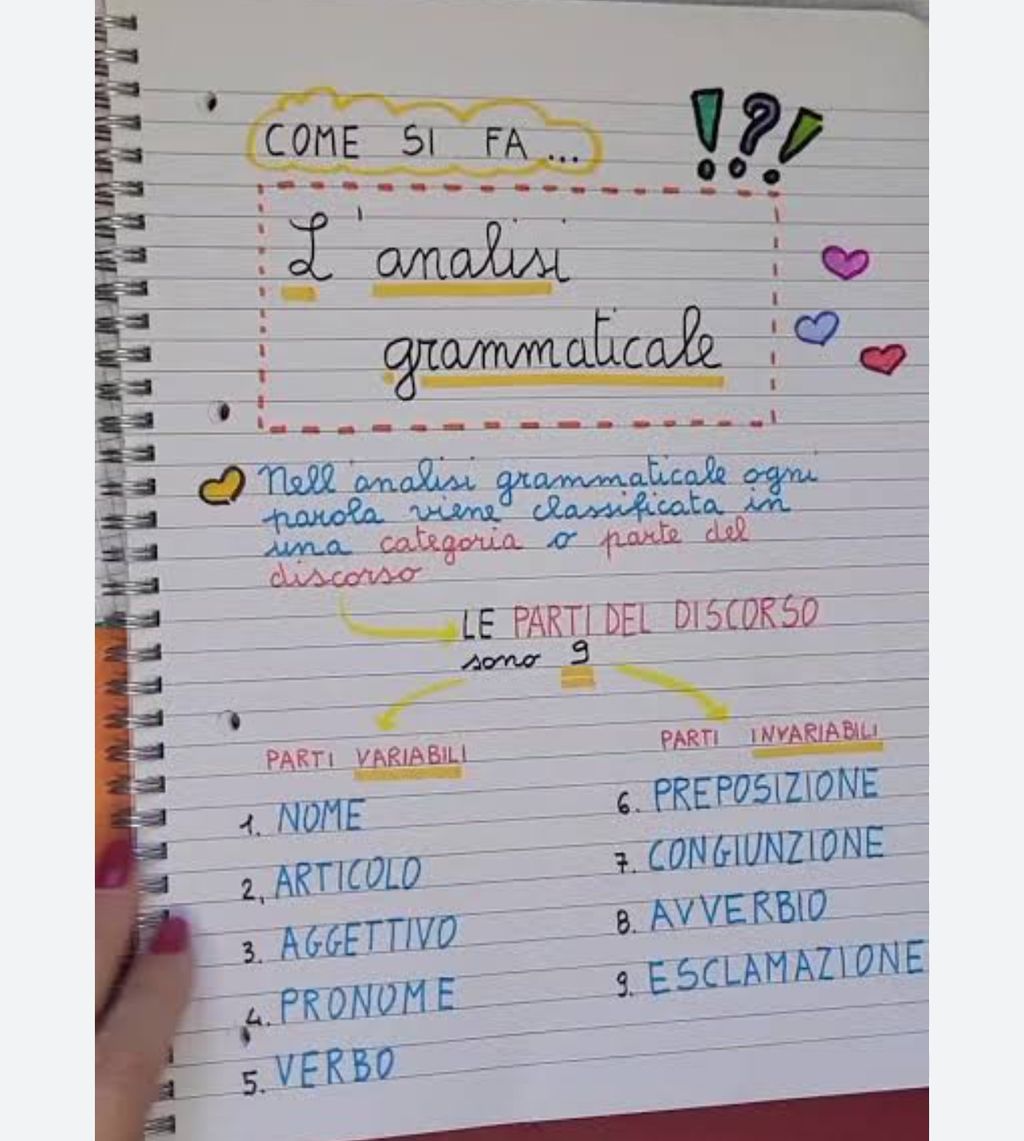 COME SI FA ...
!?!
L'analisi
grammaticale
Nell'analisi grammaticale ogni
parola viene classificata in
una categoria o parte del
discorso
LE PARTI DEL DISCORSO
sono 9
PARTI VARIABILI
1. NOME
2, ARTICOLO
3. AGGETTIVO
4. PRONOME
5. VERBO
PARTI INVARIABILI
6. PREPOSIZIONE
7. CONGIUNZIONE
8. AVVERBIO
9. ESCLAMAZIONE